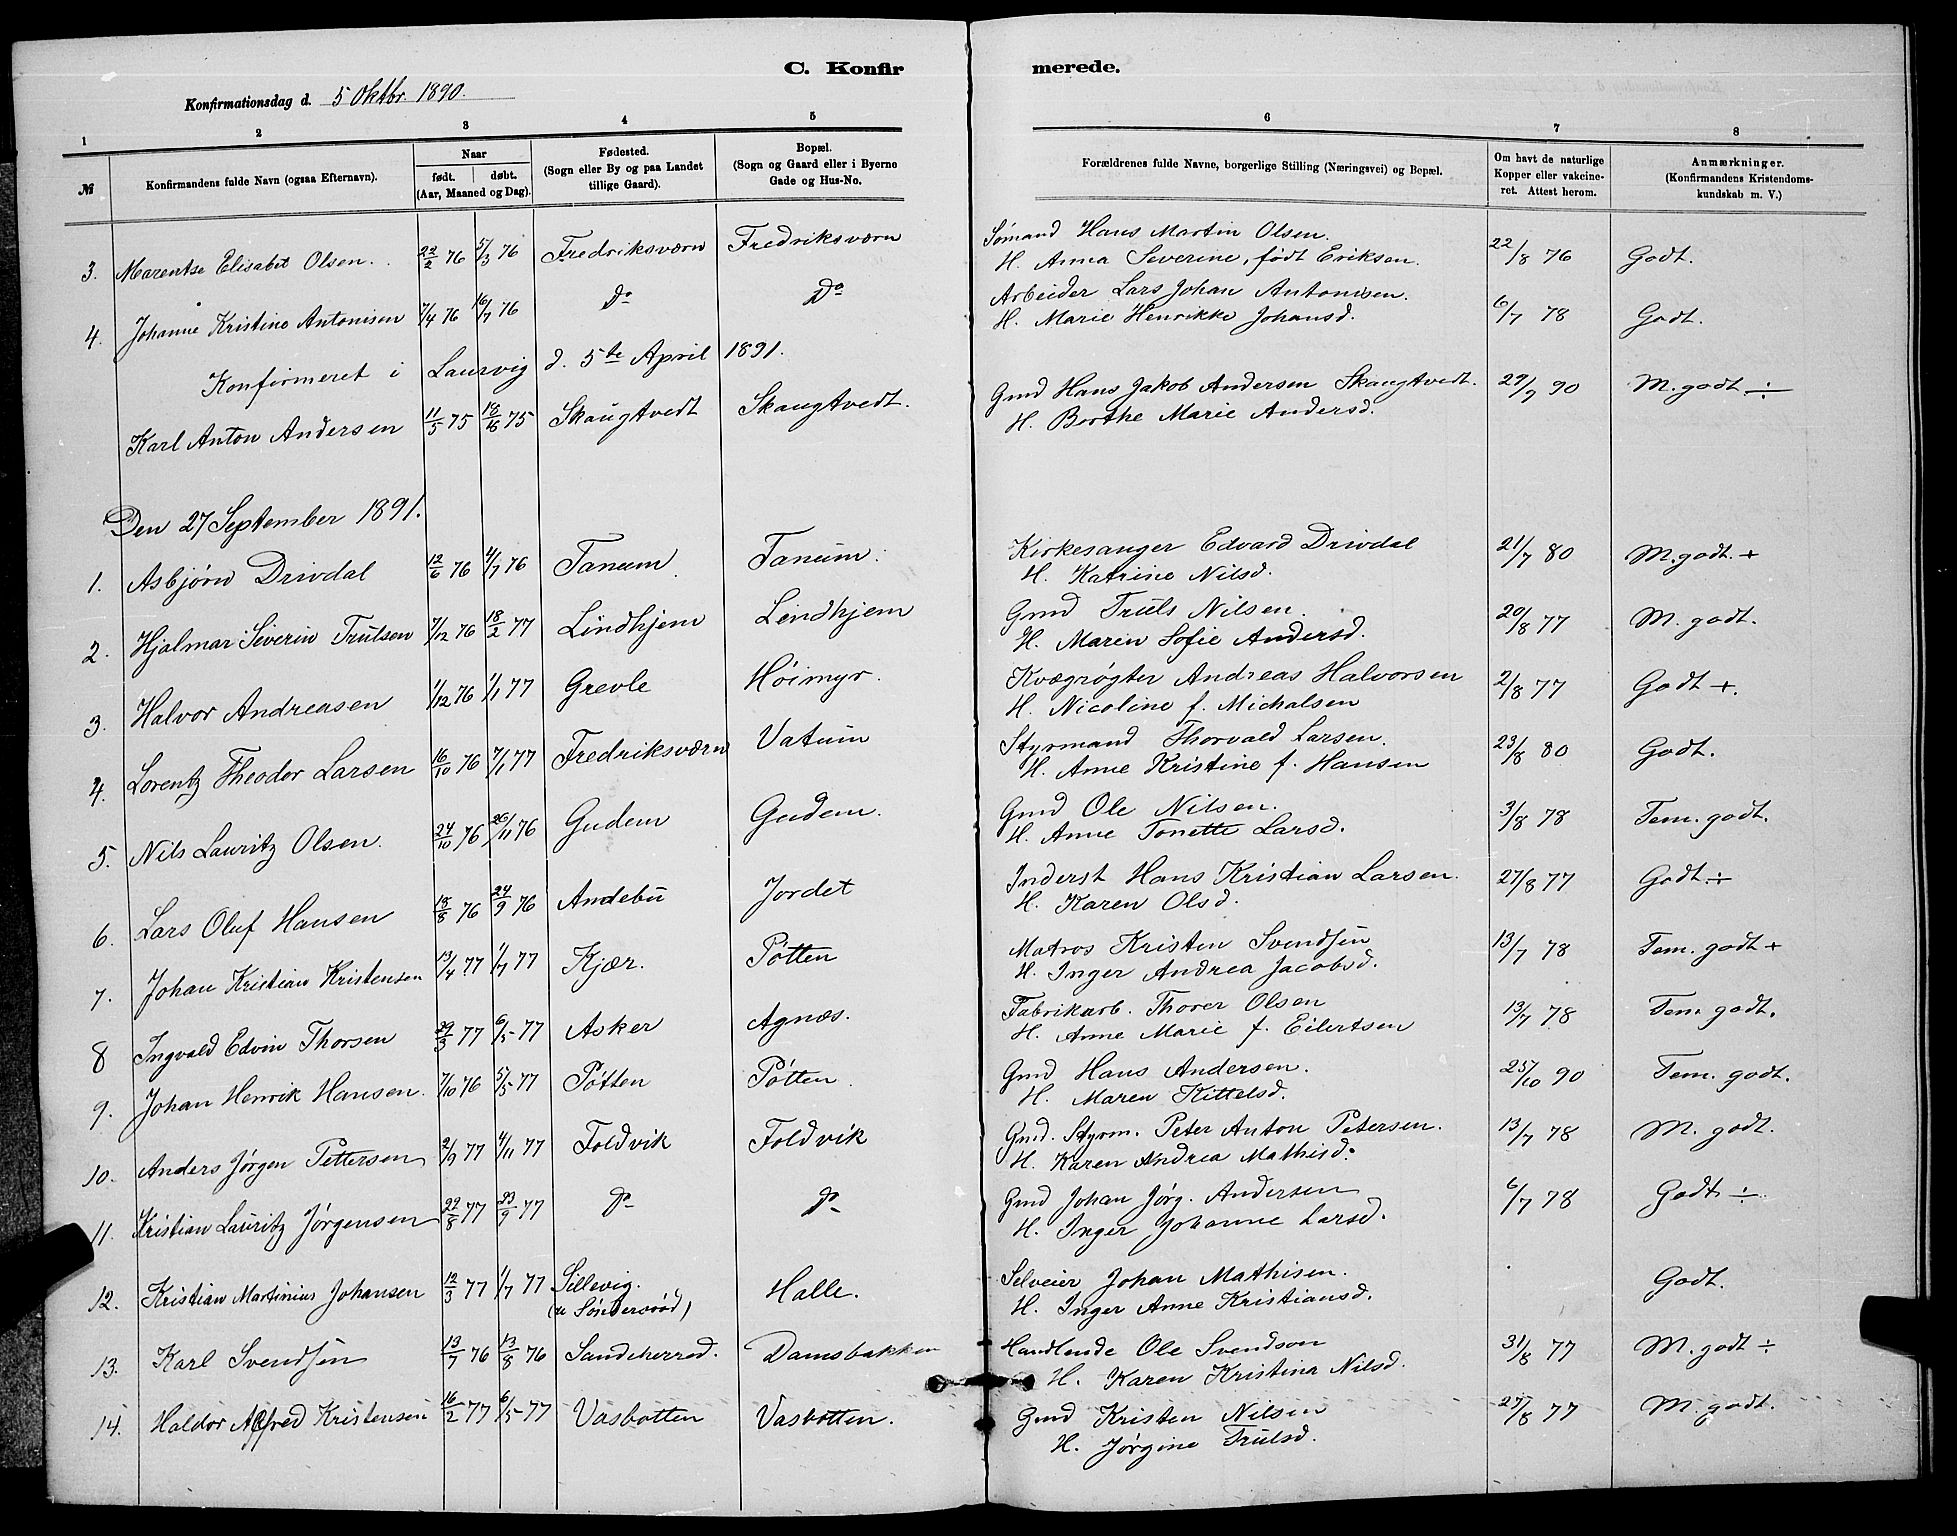 C. Konfirmerede.
Konfirmationsdag d. 5 Oktbr 1890.
1 2 3 4 5 6 7 8
№ Konfirmandens fulde Navn (ogsaa Efternavn). Naar født. døbt. (Aar, Maaned og Dag). Fødested. (Sogn eller By og paa Landet tillige Gaard). Bopæl. (Sogn og Gaard eller i Byerne Gade og Hus-No. Forældrenes fulde Navne, borgerlige Stilling (Næringsvei) og Bopæl. Om havt de naturlige Kopper eller vakcineret. Attest herom. Anmærkninger. (Konfirmandens Kristendomskundskab m. V.)
3. Marentse Elisabet Olsen. 22/2 76 5/3 76 Fredriksværn Fredriksværn Sømand Hans Martin Olsen. 22/8 76 Godt.
H. Anna Severine, født Eriksen.
4. Johanne Kristine Antonisen 7/4 76 16/7 76 Do Do Arbeider Lars Johan Antonisen. 6/7 78 Godt.
H. Marie Henrikke Johansd.
Konfirmeret i Laurvig d. 5te April 1891.
Karl Anton Andersen 11/5 75 75 Skaugtvedt Skaugtvedt. Gmd Hans Jakob Andersen Skaugtvedt. 29/9 90 M. godt ÷
H. Berthe Marie Andersd.
Den 27 September 1891.
1. Asbjørn Drivdal 12/6 76 4/7 76 Tanum Tanum. Kirkesanger Edvard Drivdal 21/7 80 M. godt. +
H. Katrine Nilsd.
2. Hjalmar Severin Trulsen 7/12 76 18/2 77 Lindhjem Lindhjem Gmd Truls Nilsen. 20/8 77 M. godt.
H. Maren Sofie Andersd.
3. Halvor Andreasen 1/12 76 1/1 77 Grevle Höimyr. Kvægrøgter Andreas Halvorsen 2/8 77 Godt +.
H. Nicoline f. Michalsen
4. Lorentz Theodor Larsen 16/10 76 7/1 77 Fredriksværn Vatum Styrmand Thorvald Larsen. 23/8 80 Godt.
H. Anne Kristine f. Hansen
5. Nils Lauritz Olsen. 24/10 76 26/11 76 Gudem Gudem. Gmd Ole Nilsen. 3/8 78 Tem. godt.
H. Anne Tonette Larsd.
6. Lars Oluf Hansen 18/8 76 24/9 76 Andebu Jordet Inderst Hans Kristian Larsen. 27/8 77 Godt. ÷
H. Karen Olsd.
7. Johan Kristian Kristensen 13/4 77 1/7 77 Kjær. Pötten Matros Kristen Svendsen 13/7 78 Tem. godt +
H. Inger Andrea Jacobsd.
8 Ingvald Edvin Thorsen 29/3 77 6/5 77 Asker Agnæs. Fabrikarb. Thorer Olsen 13/7 78 Tem godt.
H. Anne Marie f. Eilertsen
9. Johan Henrik Hansen. 7/10 76 5/5 77 Pötten Pötten. Gmd Hans Andersen. 25/10 90 Tem. godt.
H. Maren Kittelsd.
10. Anders Jörgen Pettersen 2/9 77 4/11 77 Foldvik Foldvik Gmd. Styrm. Peter Anton Petersen. 13/7 78 M. godt.
H. Karen Andrea Mathisd.
11. Kristian Lauritz Jörgensen 22/8 77 23/9 77 Do Do Gmd Johan Jörg. Andersen 6/7 78 Godt ÷
H. Inger Johanne Larsd.
12. Kristian Martinius Johansen 12/3 77 1/7 77 Sillevig. Halle. Selveier Johan Mathisen. Godt.
H. Inger Anne Kristiansd.
13. Karl Svendsen 13/7 76 13/8 76 Sandeherred. Damsbakken Handlende Ole Svendson 31/8 77 M. godt ÷
H. Karen Kristina Nilsd.
14. Haldor Alfred Kristensen 16/2 77 6/5 77 Vasbotten Vasbotten. Gmd Kristen Nilsen 27/8 77 M. godt.
H. Jörgine Trulsd.